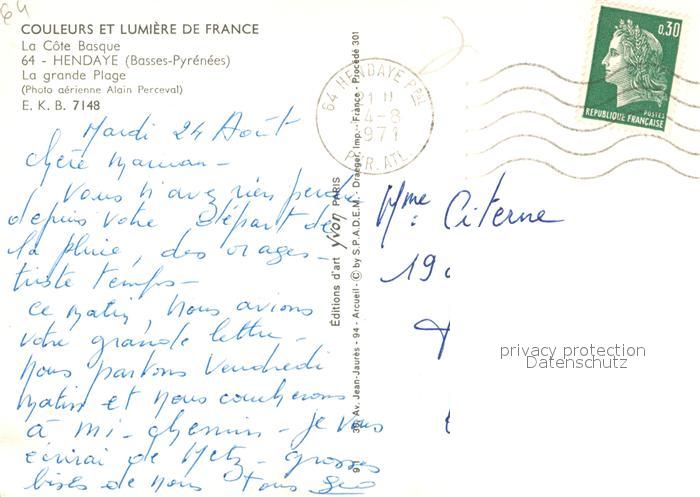 64
COULEURS ET LUMIÈRE DE FRANCE
La Côte Basque
64 - HENDAYE (Basses-Pyrénées)
La grande Plage
(Photo aérienne Alain Perceval)
E. K. B. 7148
Mardi 24 Août
Chère Maman -
Vous n'avez rien perdu
depuis votre départ de
la pluie, des orages -
triste temps -
ce matin, nous avions
votre grande lettre -
nous partons Vendredi
matin et nous coucherons
à mi-chemin - je vous
écrirai de Metz - grosses
bises de nous Tous
Editions d'art yvon PARIS
391 Av. Jean-Jaurès - 94 - Arcueil - © by S.P.A.D.E.M. - Draeger, Imp. - France - Procédé 301
64 HENDAYE PPAL
1971
PYR. ATL.
0,30
POSTES
REPUBLIQUE FRANÇAISE
Mme Citerne
19
privacy protection
Datenschutz